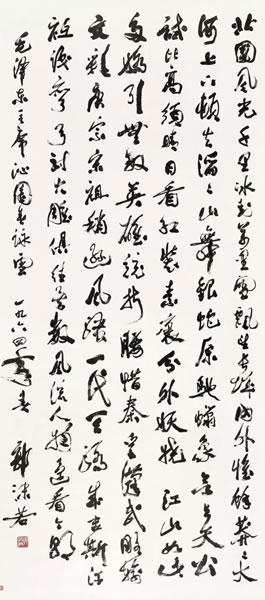 北國風光千里冰封萬里雪飄望長城內外惟餘莽々大
河上下頓失滔々山舞銀蛇原馳蠟象欲與天公
試比高須晴日看紅裝素裹分外妖嬈 江山如此
多嬌引無數英雄競折腰惜秦皇漢武略輸
文彩唐宗宋祖稍遜風騷一代天驕成吉斯汗
祗識彎弓射大雕俱往矣數風流人物還看今朝
毛澤東主席沁園春詠雪 一九六四年春 郭沫若